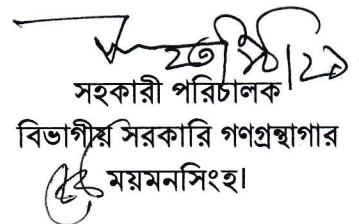 সহকারী পরিচালক
বিভাগীয় সরকারি গণগ্রন্থাগার
ময়মনসিংহ।